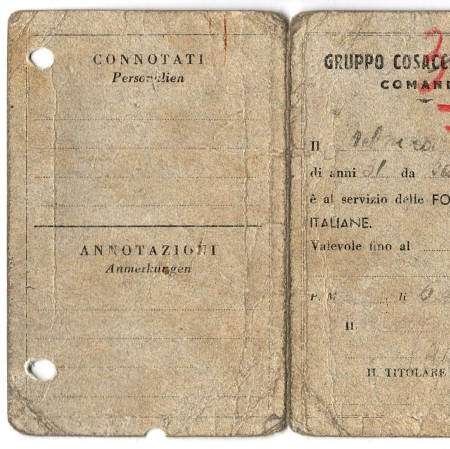 CONNOTATI
Personalien
ANNOTAZIONI
Anmerkungen
GRUPPO COSACC
COMAN
Il
di anni 31 da
è al servizio delle FO
ITALIANE.
Valevole fino al
P. M. li
Il
IL TITOLARE